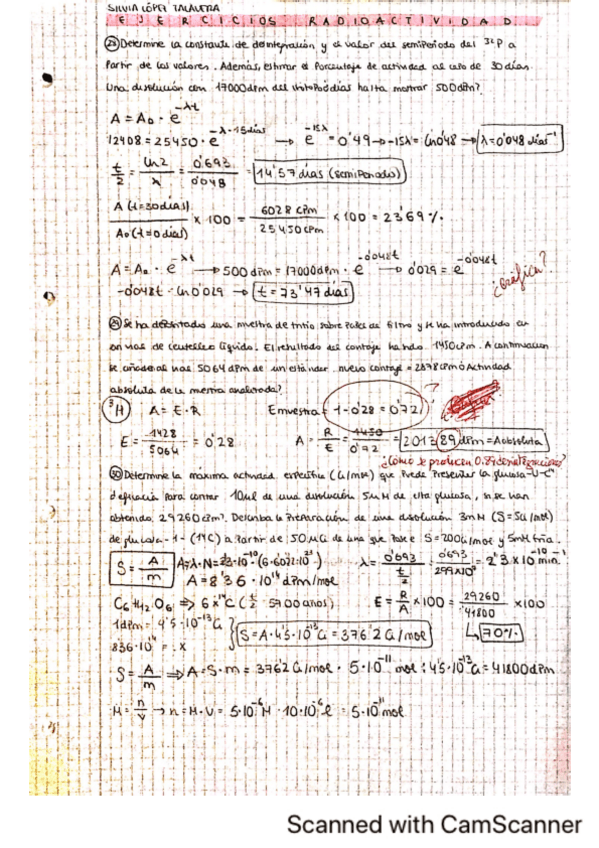 SILVIA LÓPEZ TALAVERA
EJERCICIOS RADIOACTIVIDAD
28 Determine la constante de desintegración y el valor del semiperiodo del ³²P a
Partir de los valores. Además, estimar el Porcentaje de actividad al cabo de 30 días.
Una disolución con 17000dpm del días hasta mostrar 500dpm?
A = A₀ · e^-λt
12408 = 25450 · e^-λ·15días → e^-15λ = 0'49 → -15λ = ln 0'48 → λ = 0'048 días⁻¹
t/2 = ln2/λ = 0'693/0'048 = 14'57 días (semiPeriodo)
A(t=30días)/A₀(t=0días) x 100 = 6028 cpm/25450 cpm x 100 = 23'69%
A = A₀ · e^-λt → 500 dpm = 17000dpm · e^-0'048t → 0'029 = e^-0'048t
¿Gráfica?
-0'048t = ln 0'029 → t = 73'47 días
29 Se ha una muestra de tritio sobre Papel de filtro y se ha introducido en
un vial de centelleo líquido. El resultado del contaje ha sido 1450 cpm. A continuación
se añade al vial 5064 dpm de un estándar nuevo contaje = 2878 cpm Actividad
absoluta de la muestra analizada?
³H A = E · R Emuestra = 1 - 0'28 = 0'72 ?
E = 1428/5064 = 0'28 A = R/E = 1450/0'72 = 2013'89 dpm = Aabsoluta
¿Cómo se producen 0.89 desintegraciones?
30 Determine la máxima actividad específica (Ci/mol) que Puede Presentar la glucosa-U-C¹⁴
eficacia Para contar 10µl de una disolución 5µM de esta glucosa, si se han
obtenido 29260 cpm. Describa la Preparación de una disolución 3mM (S=5Ci/mol)
de glucosa-1-(14C) a Partir de 50 µCi de una que Posee S=200Ci/mol y 5mM fría.
S = A/m A=λ·N= 2'3·10⁻¹⁰·(6·6'022·10²³) λ = 0'693/t/2 = 0'693/2'99x10⁹ = 2'3 x 10⁻¹⁰ min⁻¹
A = 8'36 · 10¹⁴ dpm/mol
C₆H₁₂O₆ ⇒ 6 x ¹⁴C (t/2 = 5700 años) E = R/A x 100 = 29260/41800 x 100
1dpm = 4'5 · 10⁻¹³ Ci
8'36·10¹⁴ = x S = A · 4'5·10⁻¹³ Ci = 376'2 Ci/mol ↳ 70%
S = A/m ⇒ A = S · m = 376'2 Ci/mol · 5·10⁻¹¹ mol : 4'5·10⁻¹³ Ci = 41800 dpm
M = n/v → n = M · V = 5·10⁻⁶ M · 10·10⁻⁶ l = 5·10⁻¹¹ mol
Scanned with CamScanner